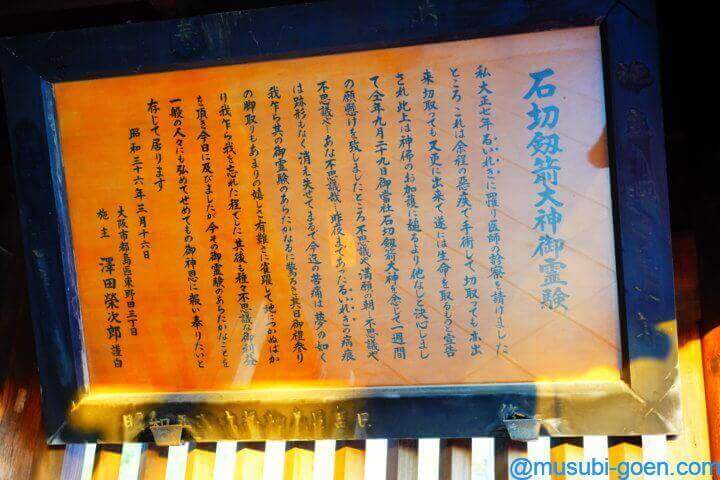 石切劔箭大神御霊験
私大正七年るいれきに罹り医師の診察を請けました
ところ これは余程の悪疾で手術して切取っても亦出
来 切取っても又更に出来て遂には生命を取るものと宣告
され此上は神佛のお加護に縋るより他なしと決心しまし
て仝年九月二十九日御當社石切劔箭大神を念じて一週間
の願懸けを致しましたところ不思議 満願の朝 不思議や
不思議や あな不思議哉 昨夜まであったるいれきの病痕
は跡形もなく消え失せてまるで今迄の苦痛は夢の如く
我乍ら其の御霊験のあらたかなるに驚ろき其日御禮参り
の脚取りもあまりの嬉しさ有難さに雀躍して地につかぬばか
り我乍ら我を忘れた程でした 其後も種々不思議な御利益
を頂き今日に及びましたが今その御霊験のあらたかなことを
一般の人々にも弘めてせめてもの御神恩に報い奉りたいと
存じて居ります
昭和三十六年三月十六日
大阪市都島區東野田三丁目
施主 澤田榮次郎 謹白
@musubi-goen.com